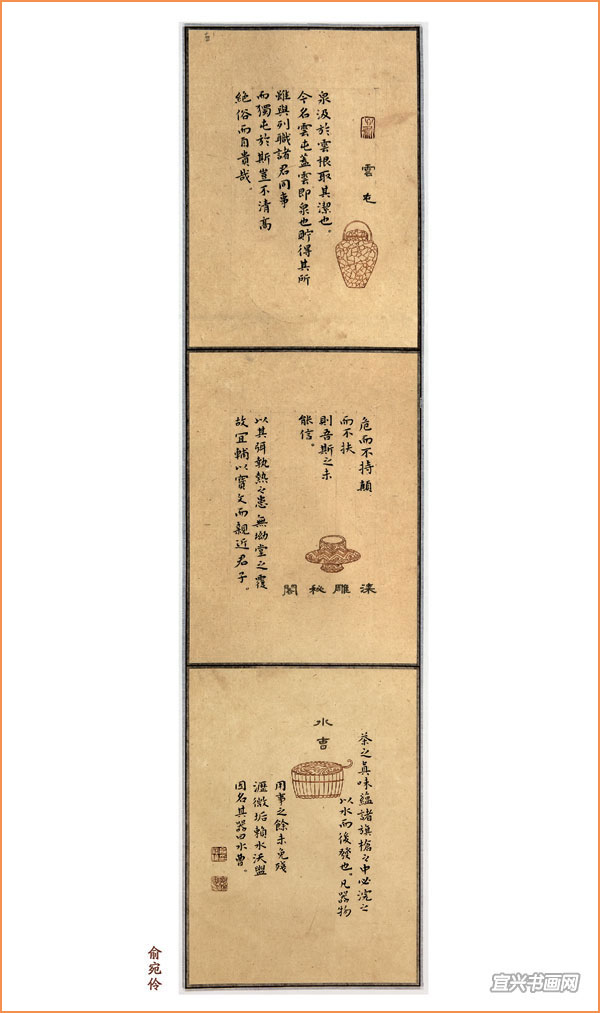 雲屯
泉汲於雲根取其潔也。
今名雲屯蓋雲即泉也貯得其所
雖與列職諸君同事
而獨屯於斯豈不清高
絕俗而自貴哉。
危而不持顛
而不扶
則吾斯之未
能信。
以其弭執熱之患無坳堂之覆
故宜輔以寶文而親近君子。
漆雕秘閣
茶之真味蘊諸旗槍之中必浣之
以水而後發也。凡器物
水曹
用事之餘未免殘
瀝微垢賴水沃盥
因名其器曰水曹。
俞宛伶
宜兴书画网